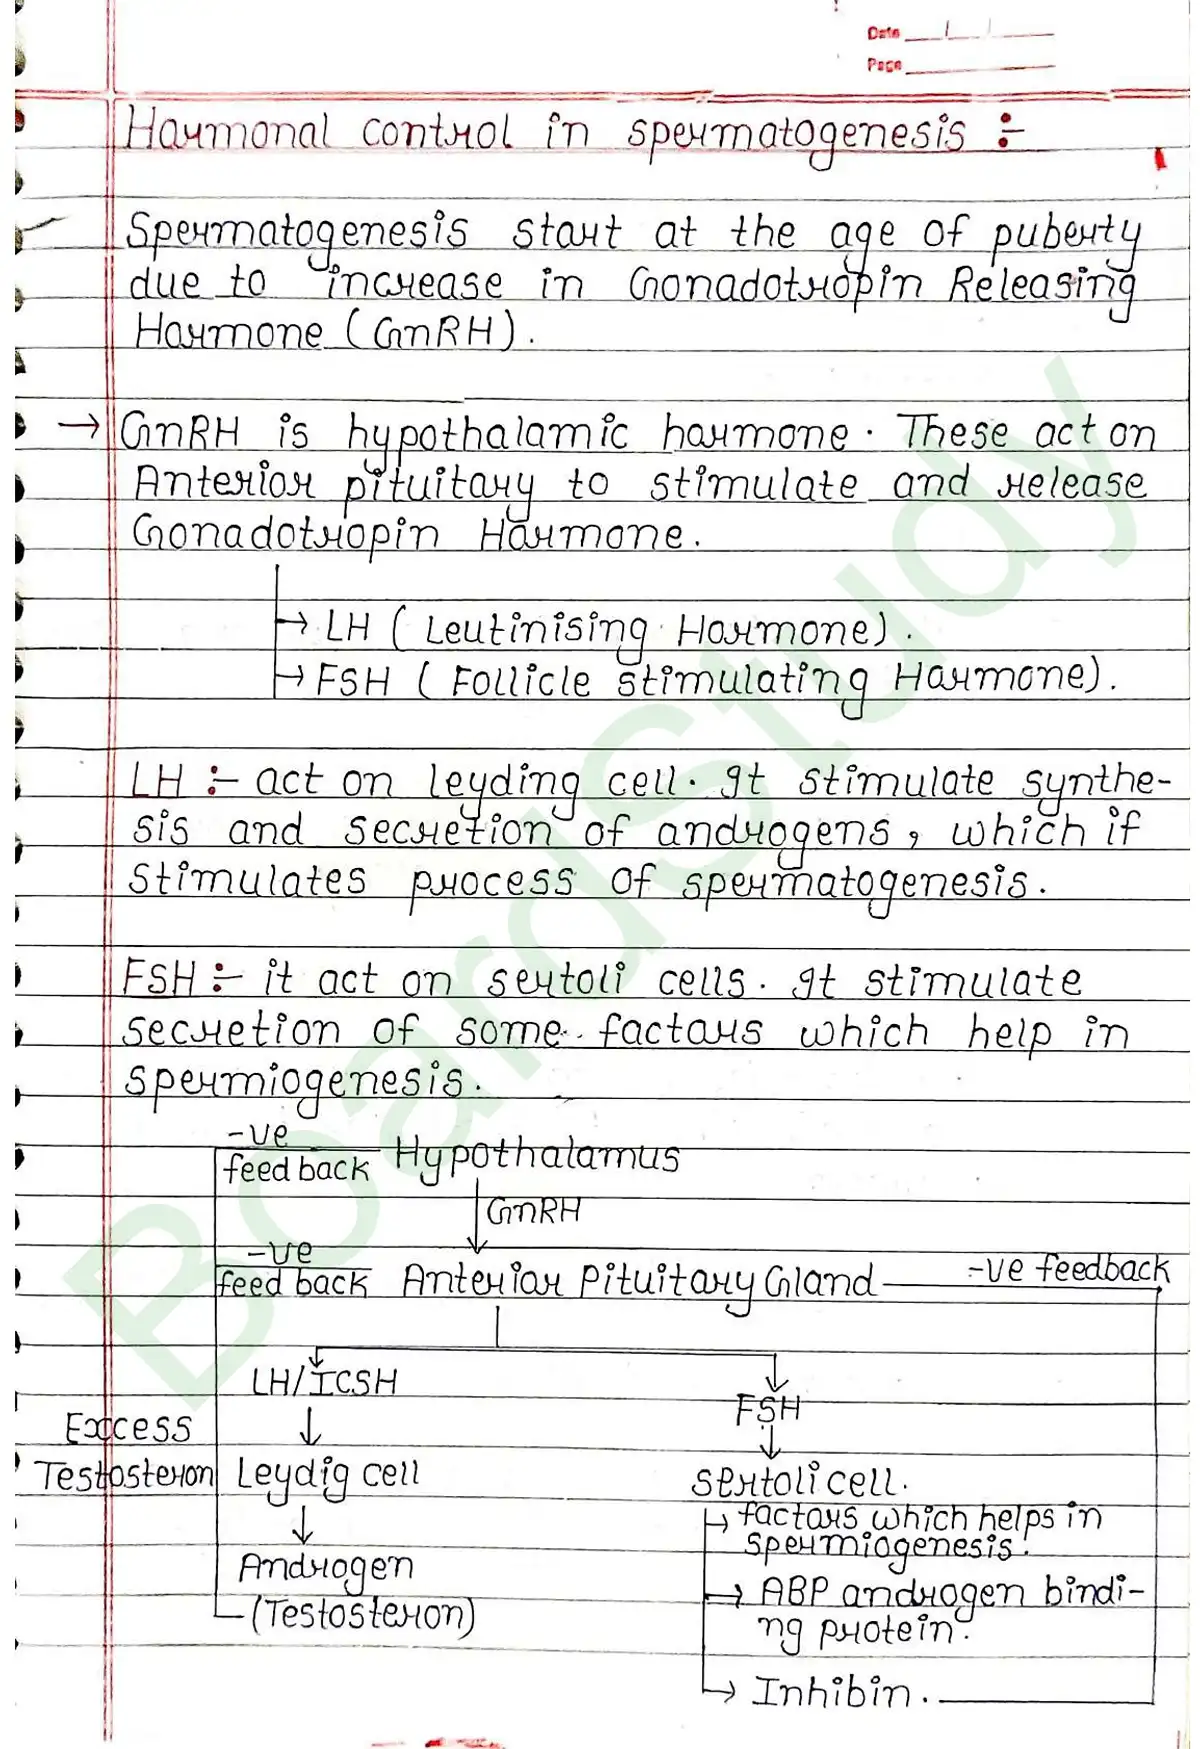 Date
Page
Harmonal control in spermatogenesis :-
Spermatogenesis start at the age of puberty
due to increase in Gonadotropin Releasing
Harmone (GnRH).
→ GnRH is hypothalamic harmone. These act on
Anterior pituitary to stimulate and release
Gonadotropin Harmone.
→ LH (Leutinising Harmone).
→ FSH (Follicle stimulating Harmone).
LH :- act on leyding cell. It stimulate synthe-
sis and secretion of androgens, which if
stimulates process of spermatogenesis.
FSH :- it act on sertoli cells. It stimulate
secretion of some factors which help in
spermiogenesis.
-ve
feed back Hypothalamus
GnRH
-ve
feed back Anterior Pituitary Gland -ve feedback
LH/ICSH
FSH
Excess
Testosteron Leydig cell
sertoli cell.
→ factars which helps in
spermiogenesis.
Androgen
→ ABP androgen bindi-
(Testosteron)
ng protein.
→ Inhibin.
BoardStudy